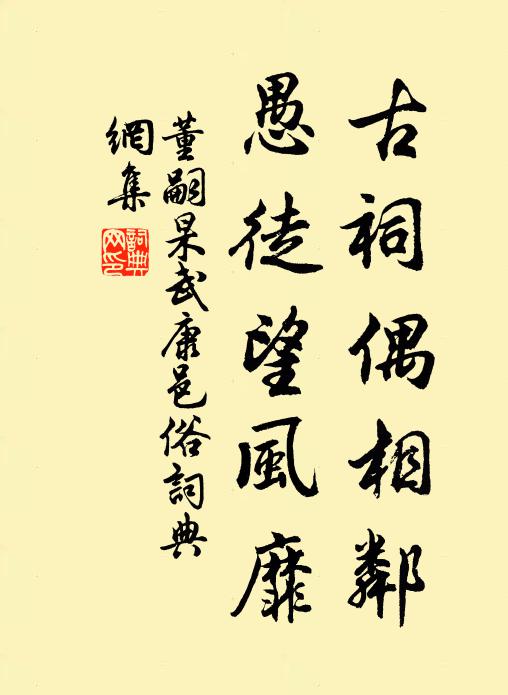 古祠偶相鄰
愚徒望風靡
董嗣杲武康邑俗詞典
網集
詞典
网印